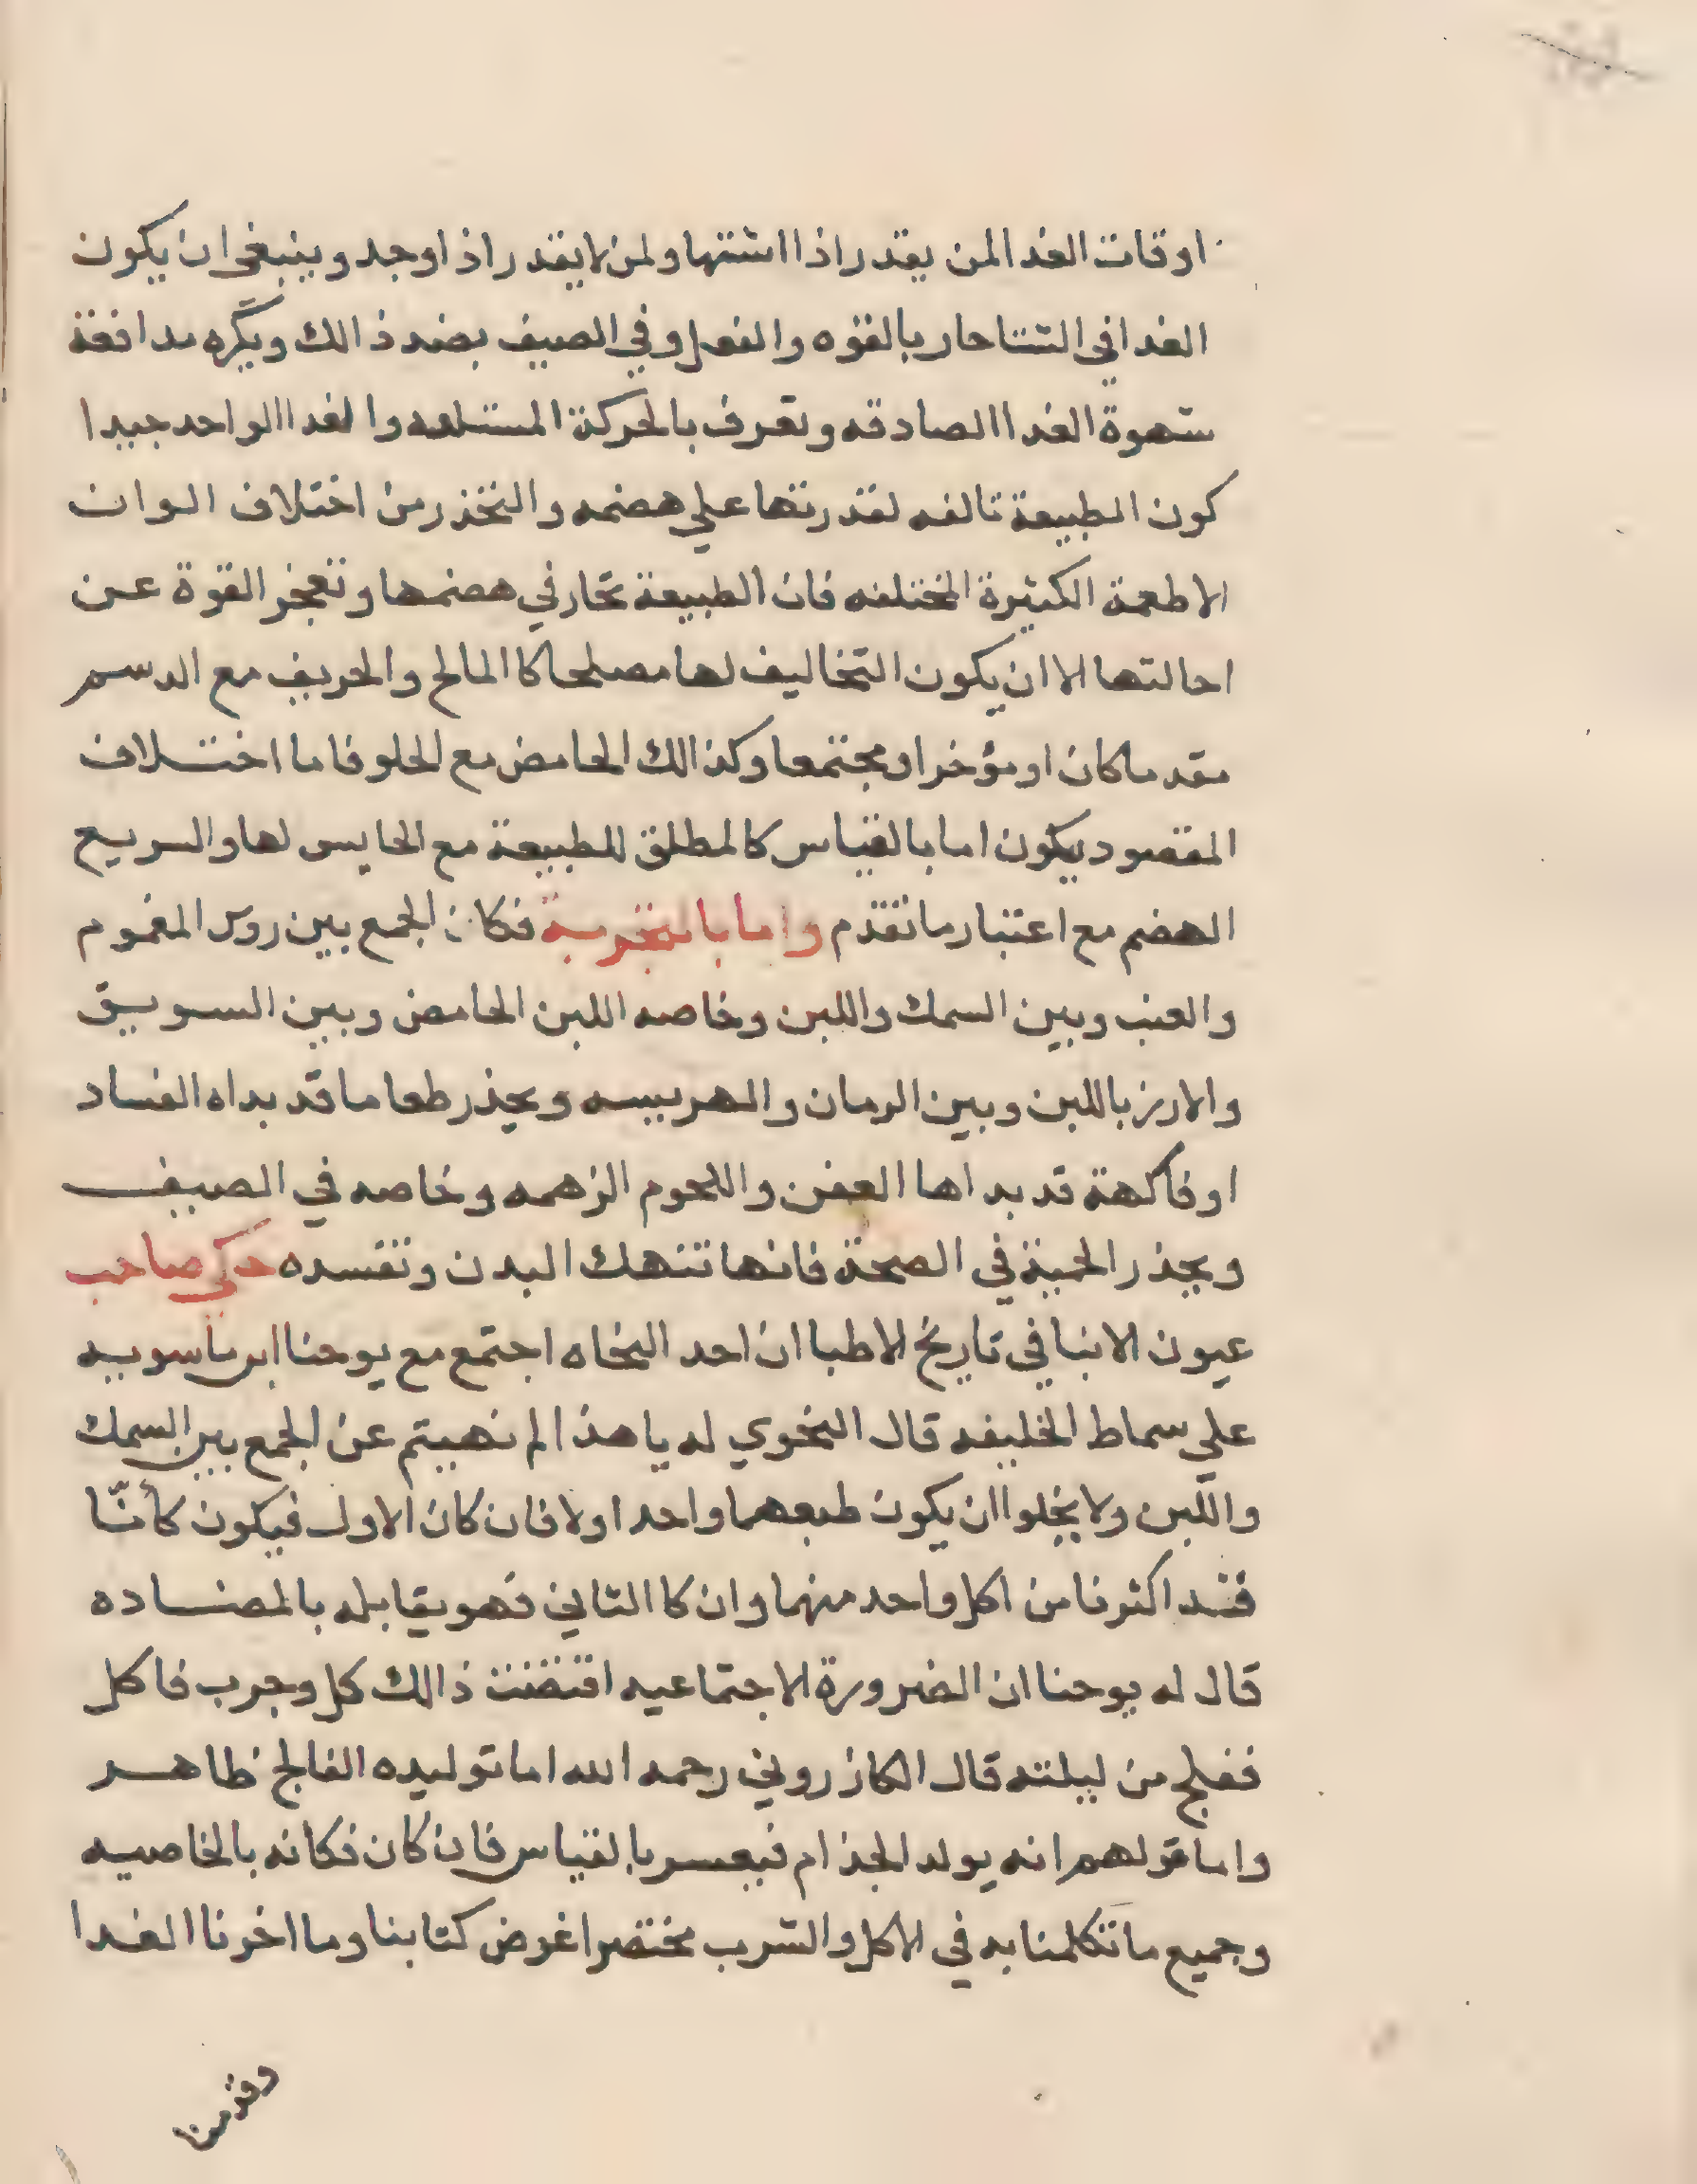 اوقات الغدا لمن يقدر اذا اشتها ولمن لا يقدر اذا وجد وينبغي ان يكون
الغدا في الشتا حار بالقوه والفعل وفي الصيف بضد ذالك ويكره مدافعة
شهوة الغدا الصادقه وتعرف بالحركة والغدا الواحد جيدا
كون الطبيعة تالفه لقدرتها علي هضمه والتحذر من اختلاف الوان
الاطعمة الكثيرة المختلفه فان الطبيعة تحار في هضمها وتعجز القوة عن
احالتها الا ان يكون التخاليف لها مصلحا كا المالح والحريف مع الدسم
مقدما كان او مؤخرا او مجتمعا وكذالك الحامض مع الحلو فاما اختلاف
المقصود يكون اما بالقياس كالمطلق للطبيعة مع الحابس لها والسريع
الهضم مع اعتبار ما تقدم واما بالتجربة فكان الجمع بين روس المغموم
والعنب وبين السمك واللبن وخاصه اللبن الحامض وبين السويق
والارز باللبن وبين الرمان والهريسه ويحذر طعاما قد بداه الفساد
او فاكهة قد بداها العفن واللحوم الزهمه وخاصه في الصيف
ويحذر الحمية في الصحة فانها تنهك البدن وتفسده حكي صاحب
عيون الانبا في تاريخ الاطبا ان احد النحاه اجتمع مع يوحنا ابن ماسويه
علي سماط الخليفه قال النحوي له يا هذا لم نهيتم عن الجمع بين السمك
واللبن ولا يخلوا ان يكون طبعهما واحد اولا فان كان الاول فيكون كأنّا
قد اكثرنا من اكل واحد منهما وان كا الثاني فهو يقابله بالمضاده
قال له يوحنا ان الضرورة الاجتماعيه اقتضت ذالك كل وجرب فاكل
ففلج من ليلته قال الكازروني رحمه الله اما توليده الفالج ظاهر
واما قولهم انه يولد الجذام فيعسر بالقياس فان كان فكانه بالخاصيه
وجميع ما تكلمنا به في الاكل والشرب مختصرا غرض كتابنا وما اخرنا الغدا